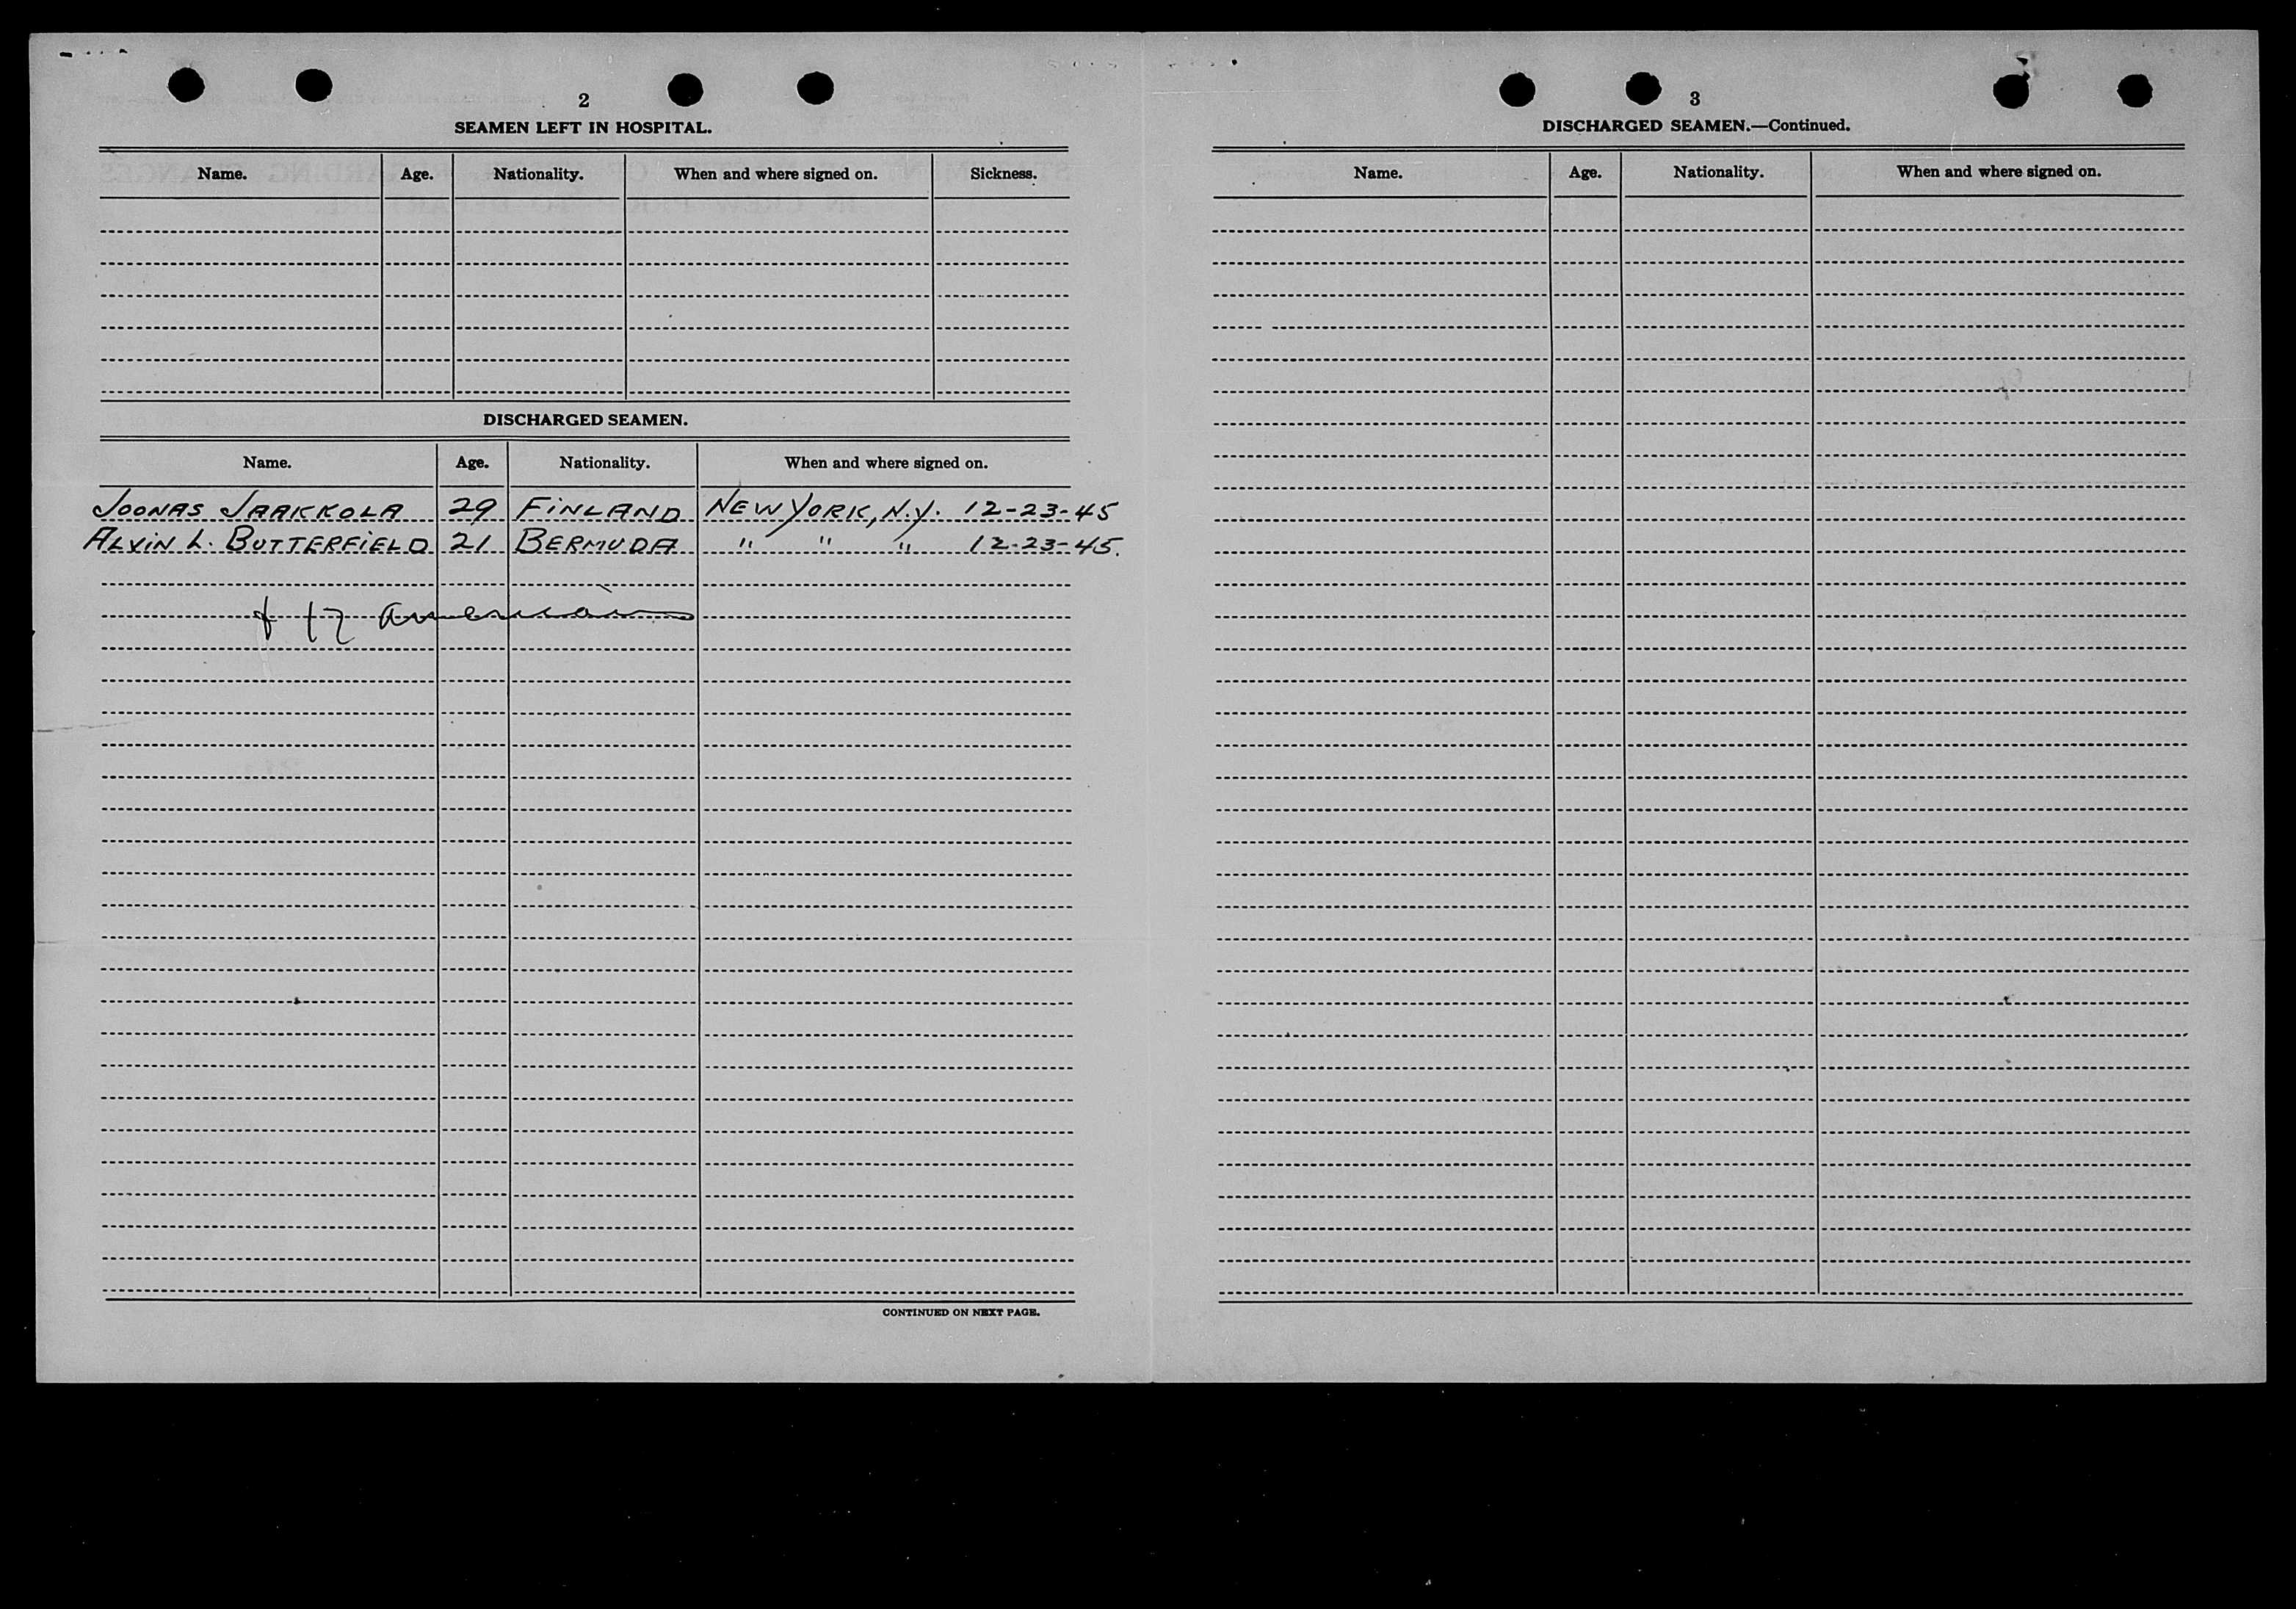 2
SEAMEN LEFT IN HOSPITAL.
Name. Age. Nationality. When and where signed on. Sickness.
DISCHARGED SEAMEN.
Name. Age. Nationality. When and where signed on.
JOONAS JAAKKOLA 29 FINLAND NEW YORK, N.Y. 12-23-45
ALVIN L. BUTTERFIELD 21 BERMUDA " " " 12-23-45.
American
CONTINUED ON NEXT PAGE.
3
DISCHARGED SEAMEN.—Continued.
Name. Age. Nationality. When and where signed on.